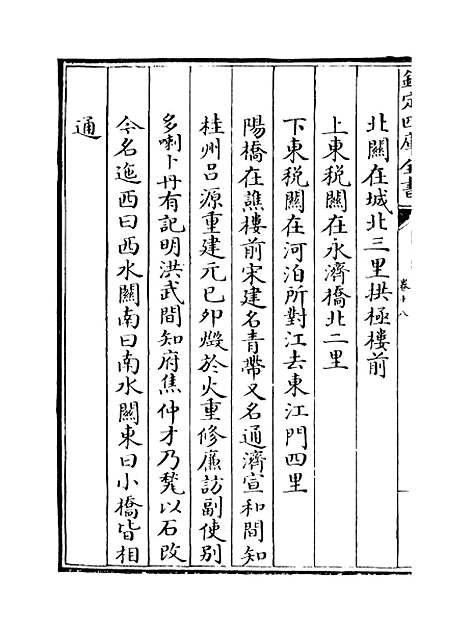 欽定四庫全書
卷十八
北關在城北三里拱極樓前
上東税關在永濟橋北二里
下東税關在河泊所對江去東江門四里
陽橋在譙樓前宋建名青帶又名通濟宣和間知
桂州吕源重建元已夘燬於火重修廉訪副使别
多喇卜丹有記明洪武間知府焦仲才乃甃以石改
今名迤西曰西水關南曰南水關東曰小橋皆相
通